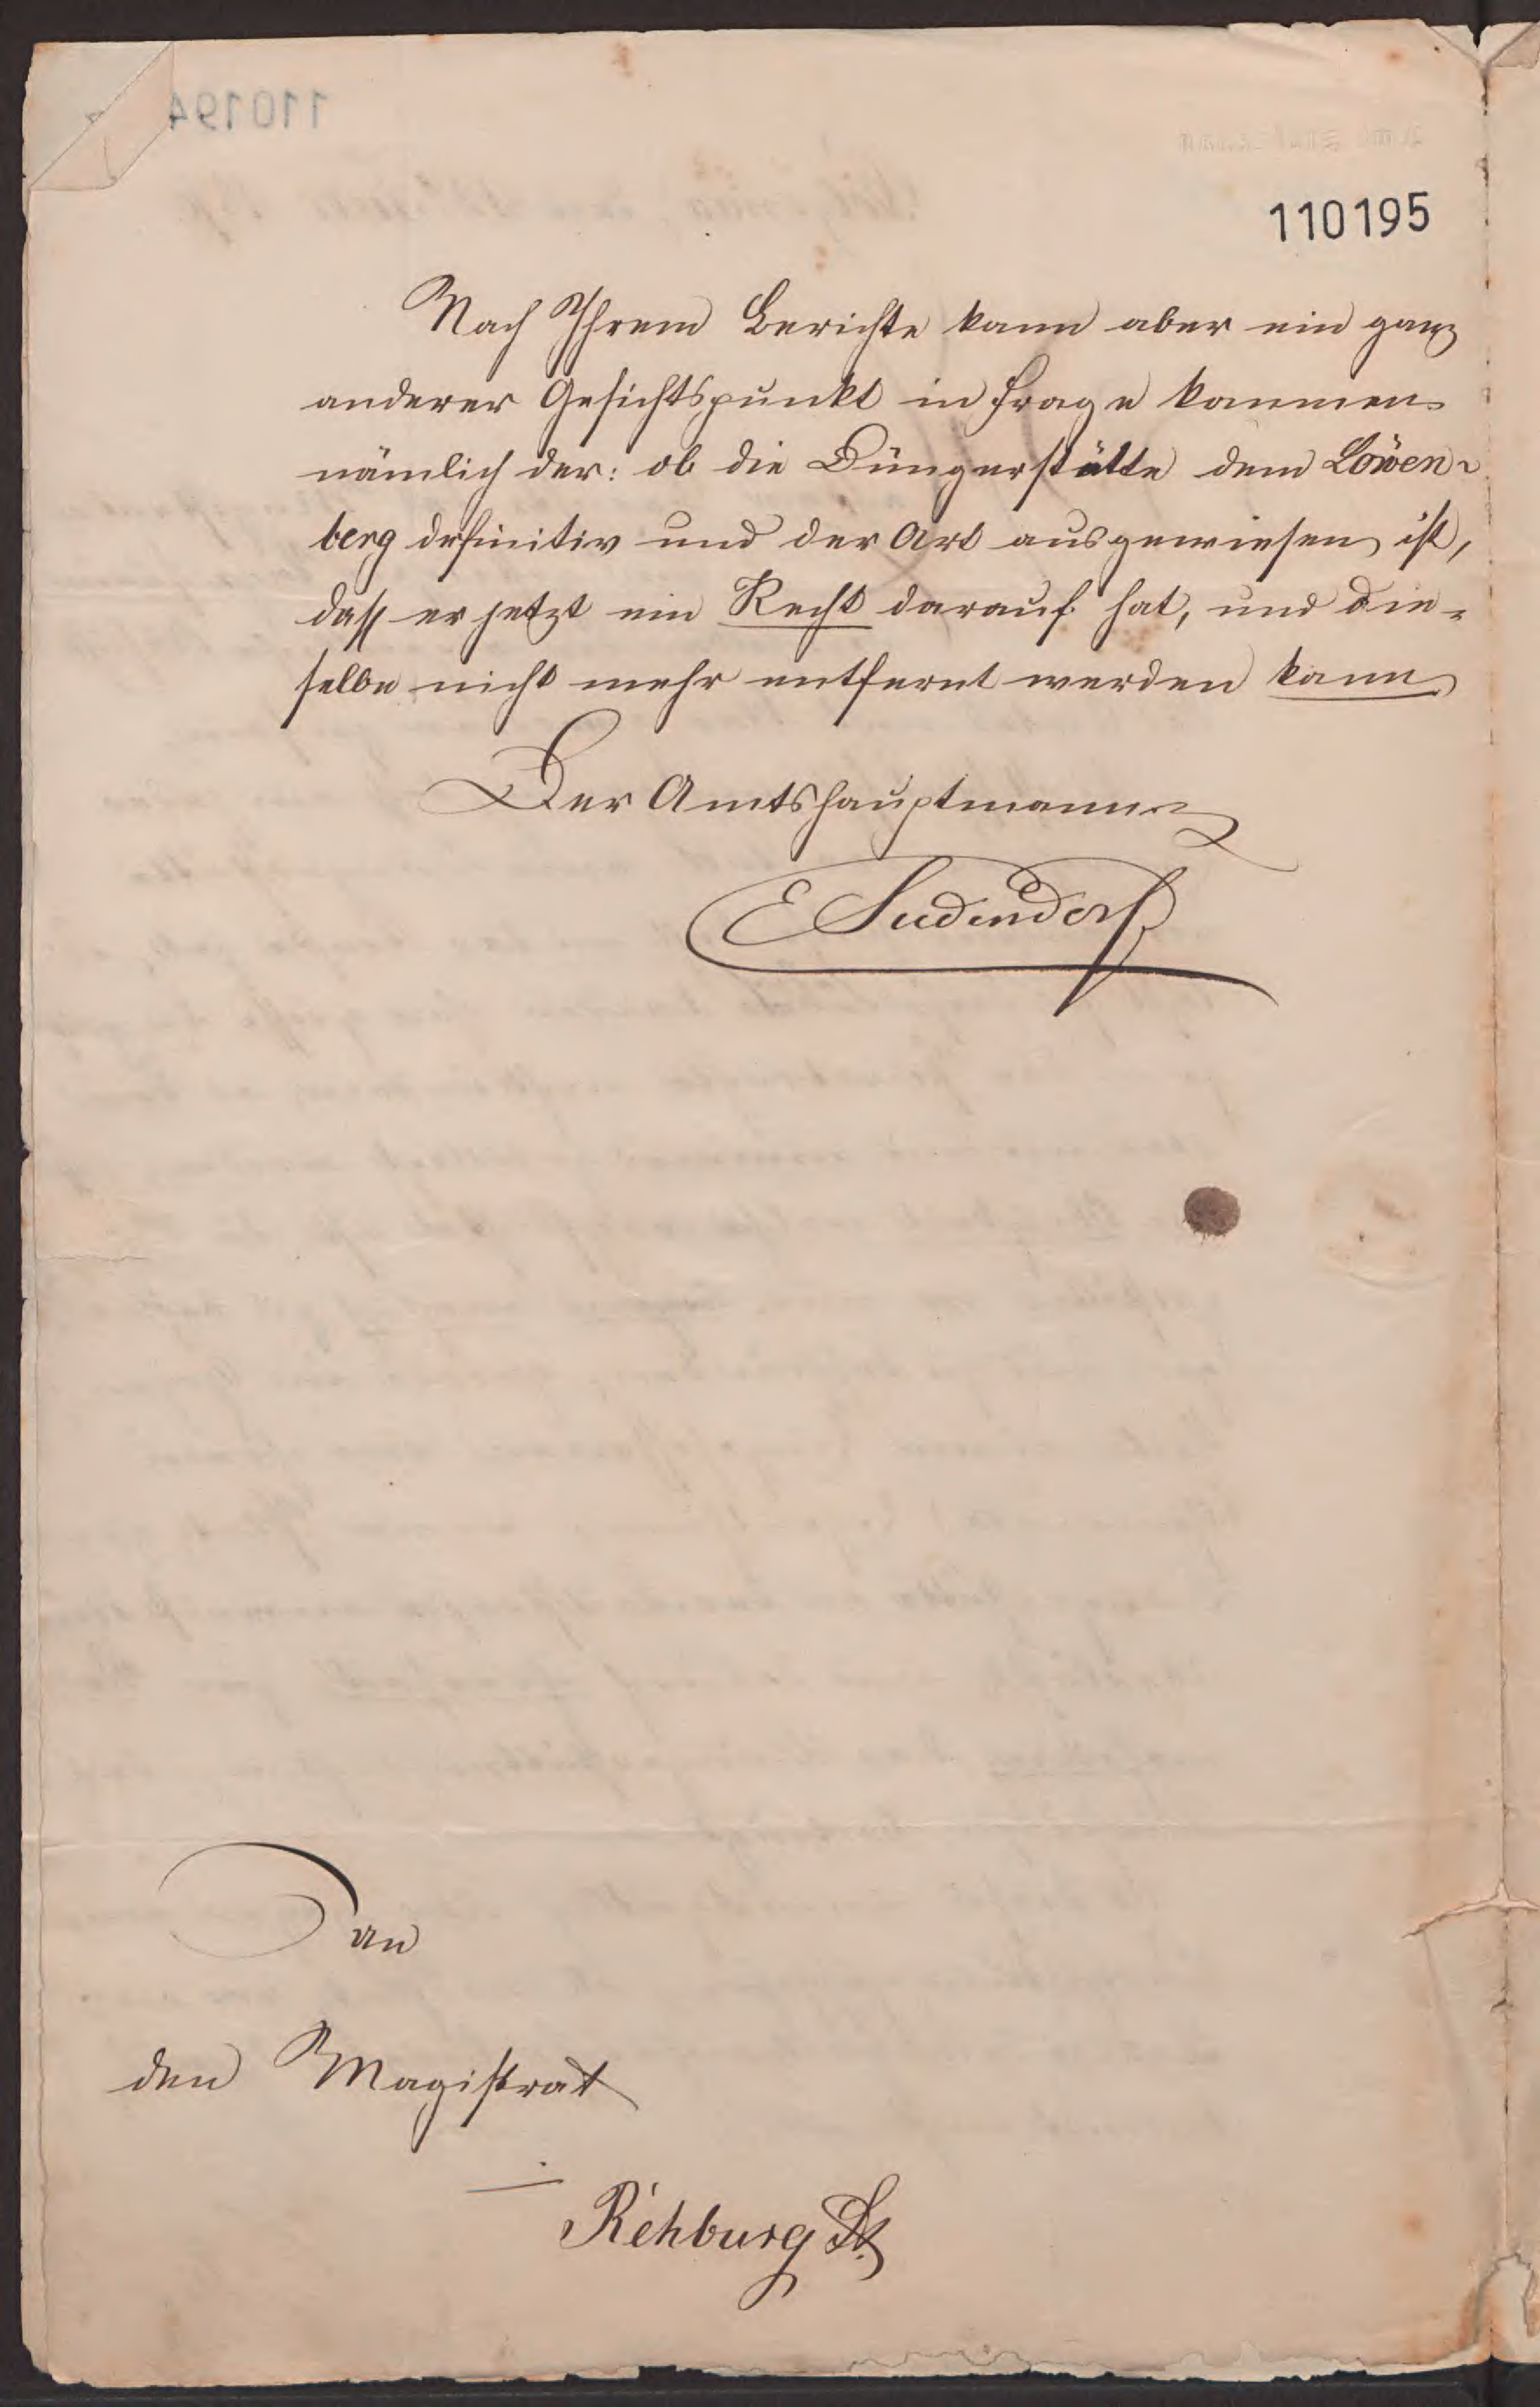 110195
Nach Ihrem Berichte kann aber ein ganz
anderer Gesichtspunkt in Frage kommen
nämlich der: ob die Düngerstätte dem Löwen-
berg definitiv und der Art ausgewiesen ist,
dass er jetzt ein Recht darauf hat, und die-
selbe nicht mehr entfernt werden kann
Der Amtshauptmann
E Sudendorf
An
den Magistrat
Rehburg St.